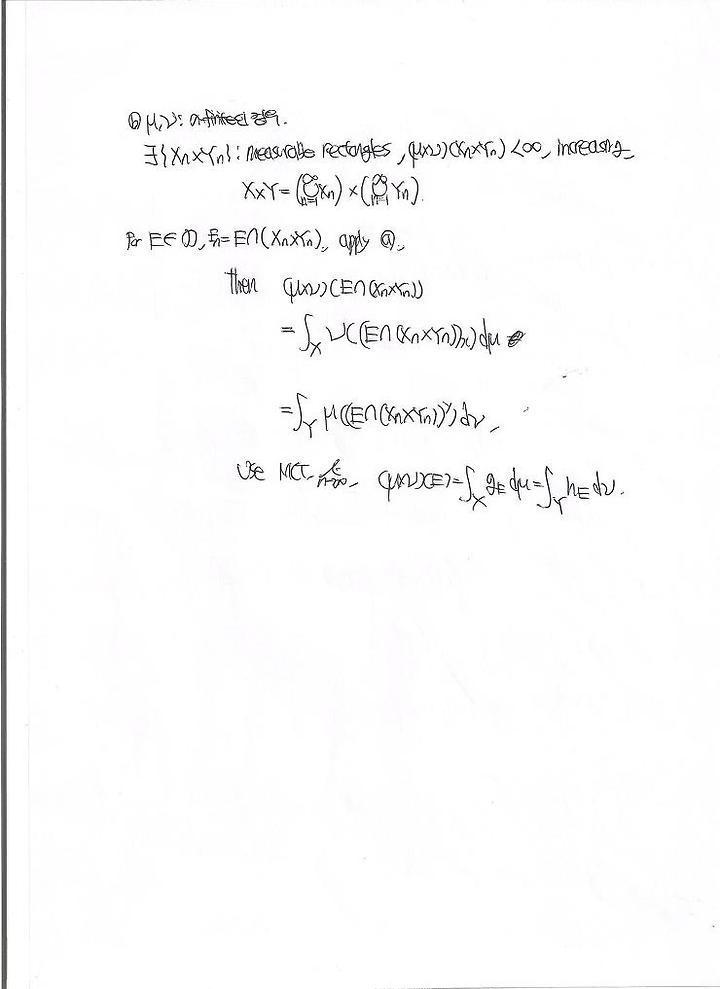 ⓑ μ, ν: σ-finite인 경우.
∃{Xn×Yn}: measurable rectangles, (μ×ν)(Xn×Yn) <∞, increasing
X×Y = (∪_{n=1}^∞ Xn) × (∪_{n=1}^∞ Yn).
For E∈ , En=E∩(Xn×Yn), apply ⓐ,
then (μ×ν)(E∩(Xn×Yn))
= ∫_X ν((E∩(Xn×Yn))x) dμ
= ∫_Y μ((E∩(Xn×Yn))^y) dν,
Use MCT, lim_{n→∞}, (μ×ν)(E) = ∫_X g_E dμ = ∫_Y h_E dν.